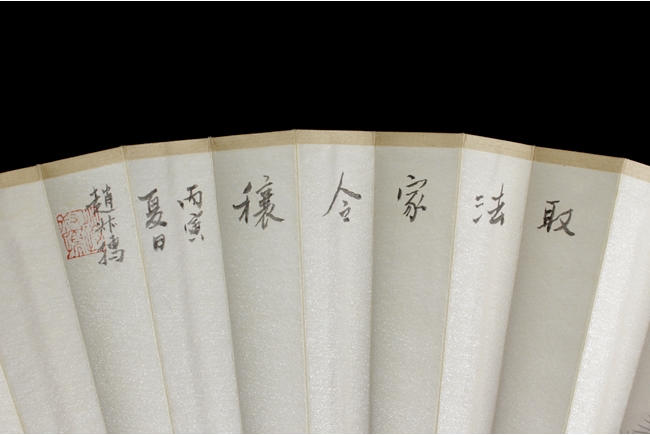 取法家令穰
丙寅
夏日
趙